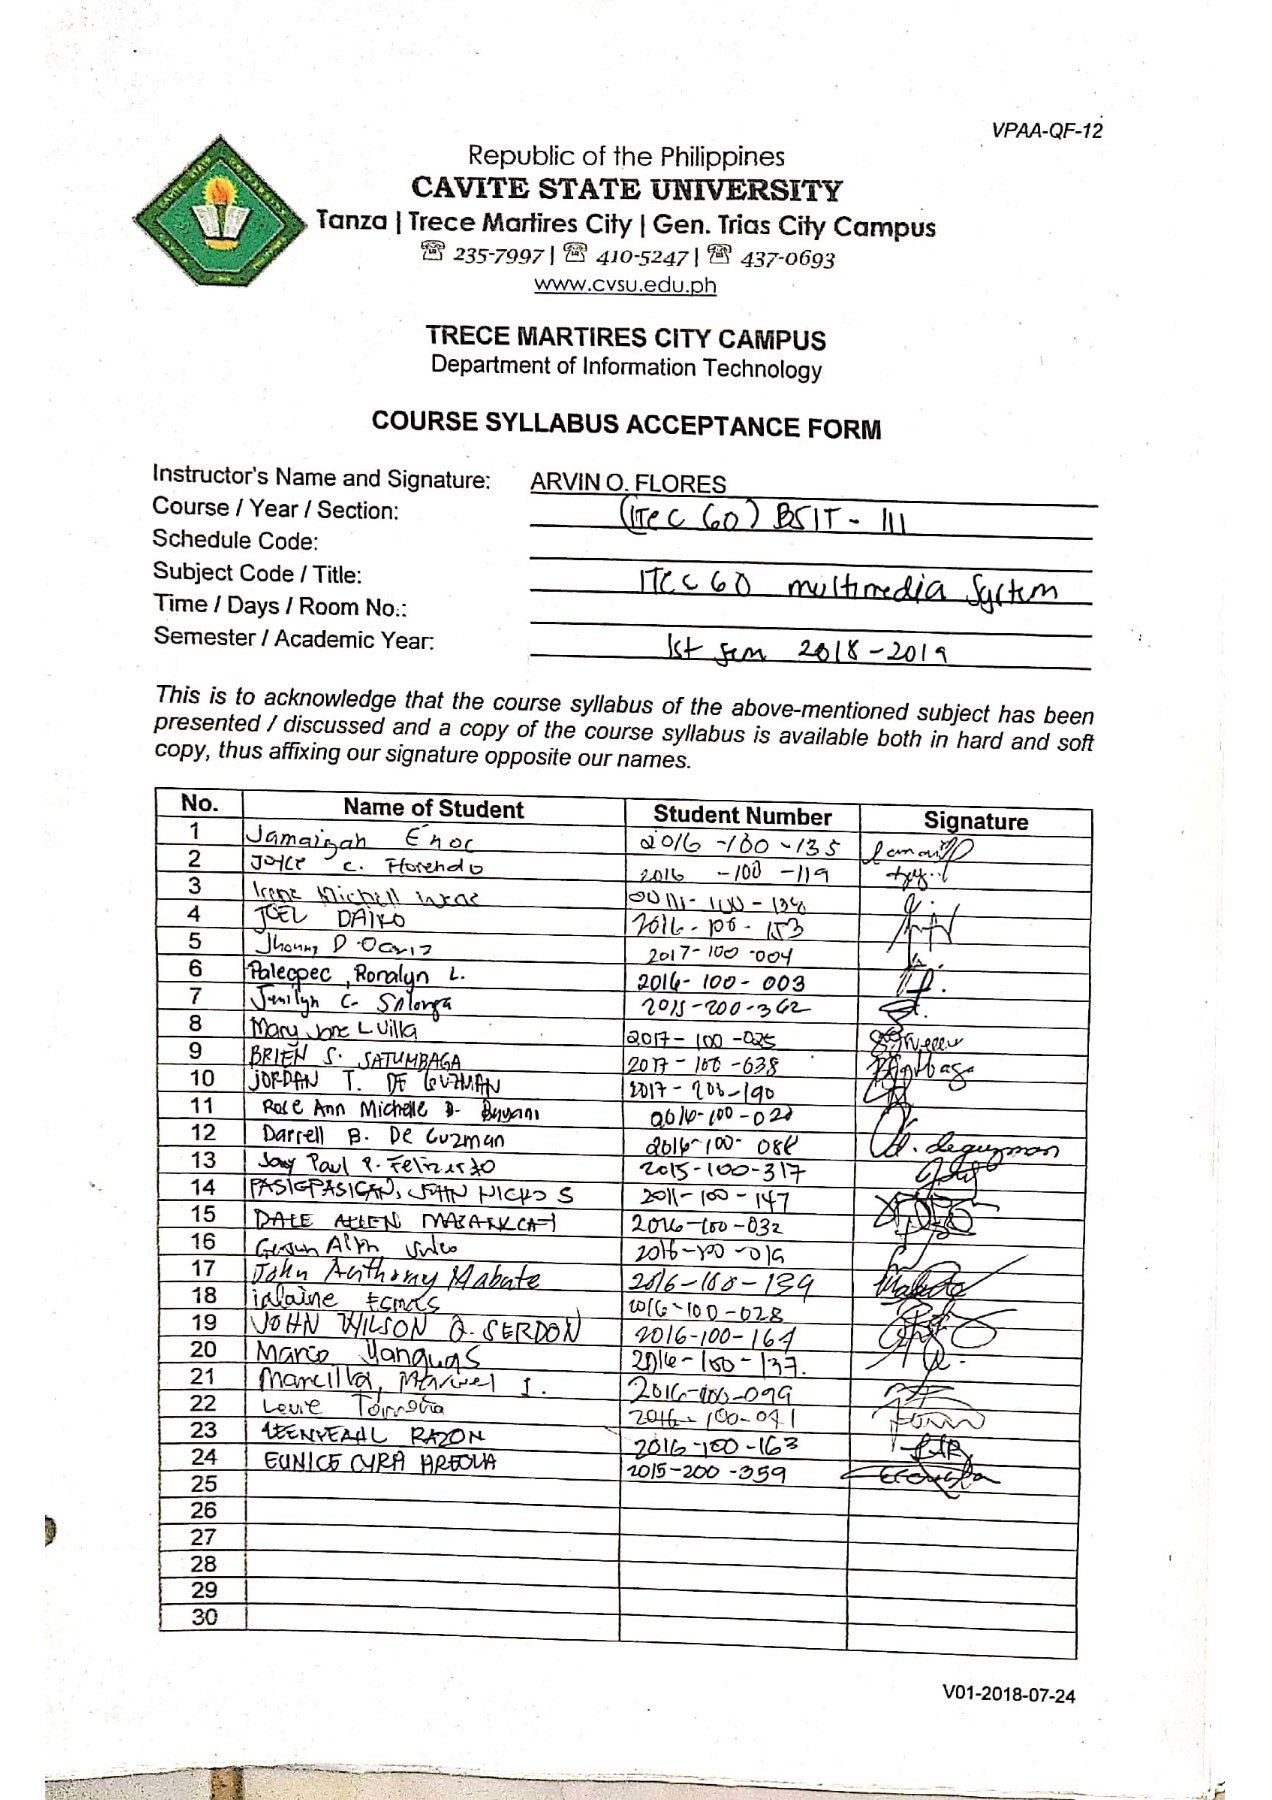 VPAA-QF-12
Republic of the Philippines
CAVITE STATE UNIVERSITY
Tanza | Trece Martires City | Gen. Trias City Campus
☏ 235-7997 | ☏ 410-5247 | ☏ 437-0693
www.cvsu.edu.ph
TRECE MARTIRES CITY CAMPUS
Department of Information Technology
COURSE SYLLABUS ACCEPTANCE FORM
Instructor's Name and Signature: ARVIN O. FLORES
Course / Year / Section: (ITEC 60) BSIT - III
Schedule Code:
Subject Code / Title: ITEC 60 multimedia System
Time / Days / Room No.:
Semester / Academic Year: 1st Sem 2018-2019
This is to acknowledge that the course syllabus of the above-mentioned subject has been
presented / discussed and a copy of the course syllabus is available both in hard and soft
copy, thus affixing our signature opposite our names.
No. Name of Student Student Number Signature
1 Jamaizah Enoc 2016-100-135
2 Joyce C. Florendo 2016-100-119
3 Irene Michell
4 JOEL DAIKO 2016-100-153
5 Jhonny D. 2017-100-004
6 Palecpec, Roralyn L. 2016-100-003
7 Jenilyn C. Solonga 2015-200-362
8 Mary Jane L. Villa 2017-100-025
9 BRIEN S. SATUMBAGA 2017-100-638
10 JORDAN T. DE GUZMAN 2017-203-190
11 Rose Ann Michelle D. Buyani 2016-100-021
12 Darrell B. De Guzman 2016-100-088 d. deguzman
13 Jay Paul P. Felizardo 2015-100-317
14 PASIGPASIGAN, JOHN NICKO S 2011-100-147
15 DALE ALLEN 2016-100-032
16 2016-100-019
17 John Anthony Mabute 2016-100-139 Mabute
18 ialaine Esmas 2016-100-028
19 JOHN WILSON Q. SERDON 2016-100-164
20 Marco Yanguas 2016-100-137.
21 Marcilla, I. 2016-100-099
22 Levie Torroña 2016-100-071
23 RAZON 2016-100-163
24 EUNICE CYRA AREOLA 2015-200-359
25
26
27
28
29
30
V01-2018-07-24